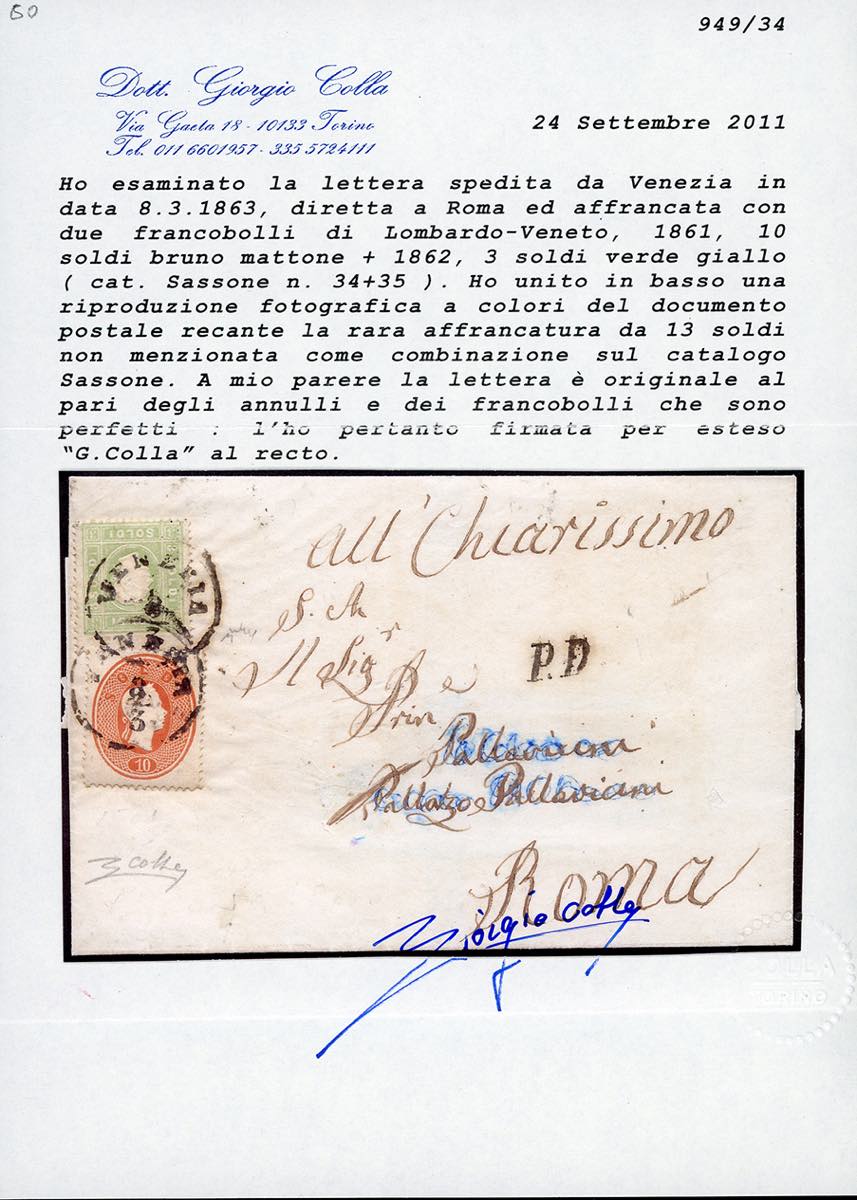 60
949/34
Dott. Giorgio Colla
Via Gaeta 18 - 10133 Torino
Tel. 011 6601957 - 335 5724111
24 Settembre 2011
Ho esaminato la lettera spedita da Venezia in
data 8.3.1863, diretta a Roma ed affrancata con
due francobolli di Lombardo-Veneto, 1861, 10
soldi bruno mattone + 1862, 3 soldi verde giallo
( cat. Sassone n. 34+35 ). Ho unito in basso una
riproduzione fotografica a colori del documento
postale recante la rara affrancatura da 13 soldi
non menzionata come combinazione sul catalogo
Sassone. A mio parere la lettera è originale al
pari degli annulli e dei francobolli che sono
perfetti : l'ho pertanto firmata per esteso
"G.Colla" al recto.
all' Chiarissimo
S. M
Il Sig.r
P.D
Prin
Pallavicini
Pallazo Pallavicini
Roma
SOLDI
VENEZIA
VENEZIA
8
3
SOLDI
10
G Colla
Giorgio Colla
COLLA
TORINO